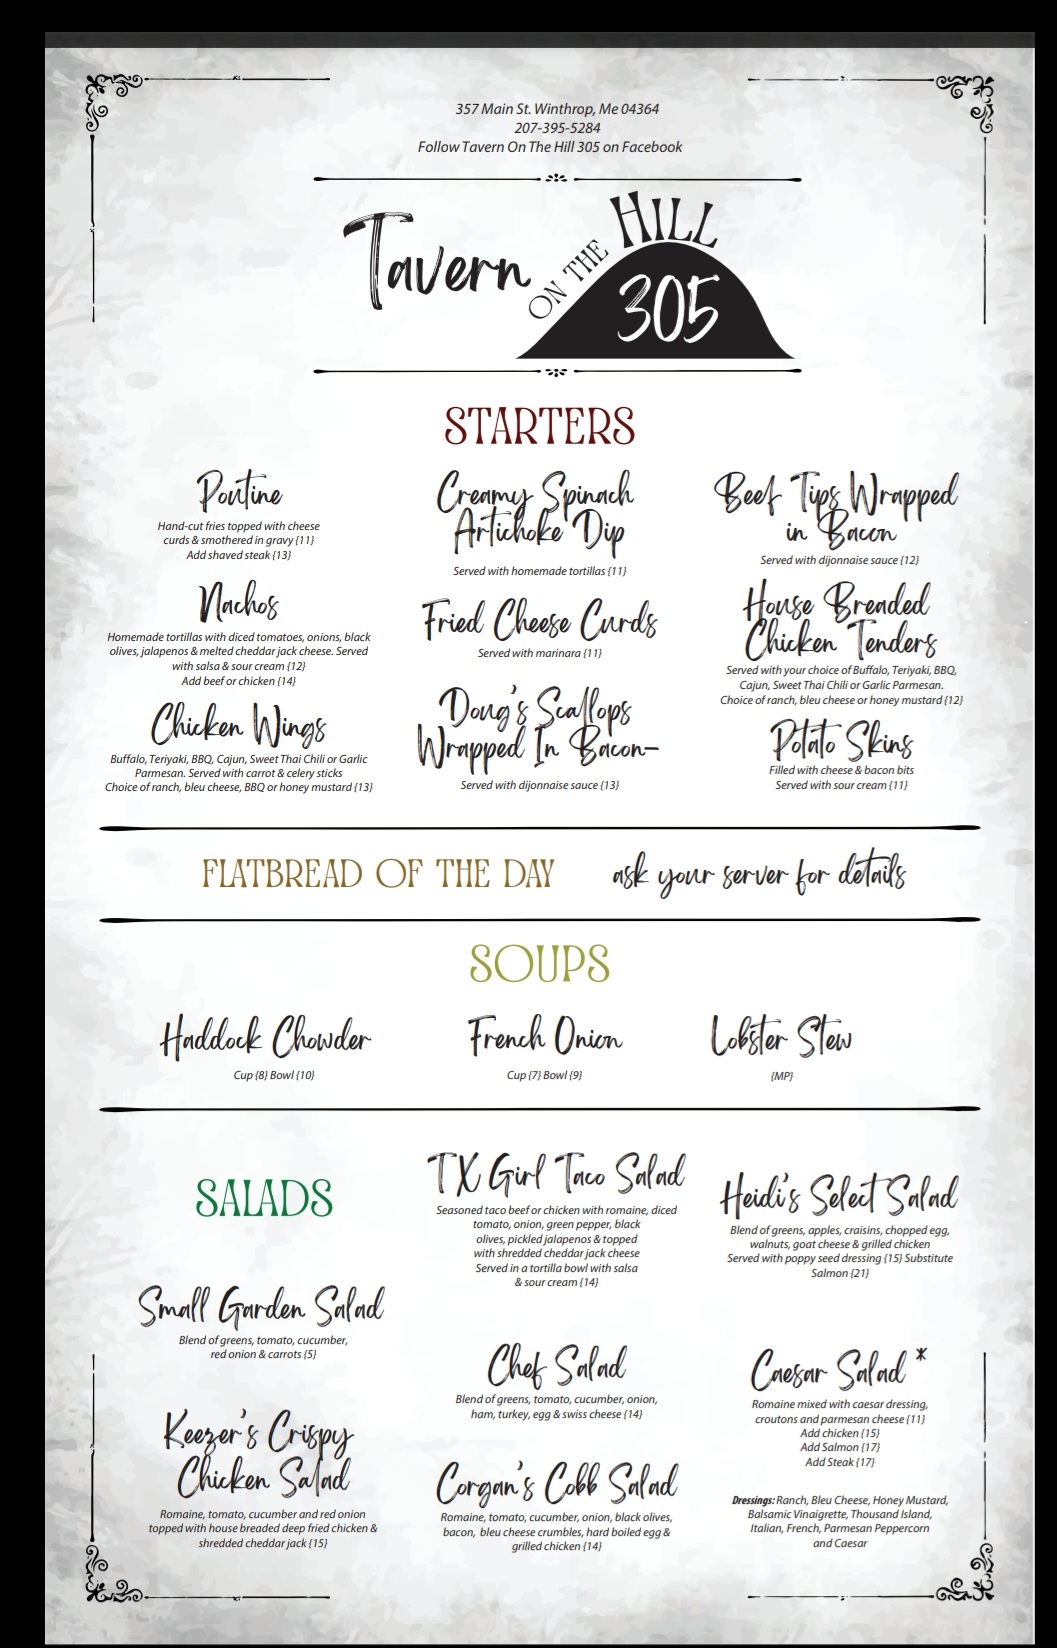 357 Main St. Winthrop, Me 04364
207-395-5284
Follow Tavern On The Hill 305 on Facebook
Tavern ON THE HILL
305
STARTERS
Poutine
Hand-cut fries topped with cheese
curds & smothered in gravy {11}
Add shaved steak {13}
Nachos
Homemade tortillas with diced tomatoes, onions, black
olives, jalapenos & melted cheddar jack cheese. Served
with salsa & sour cream {12}
Add beef or chicken {14}
Chicken Wings
Buffalo, Teriyaki, BBQ, Cajun, Sweet Thai Chili or Garlic
Parmesan. Served with carrot & celery sticks
Choice of ranch, bleu cheese, BBQ or honey mustard {13}
Creamy Spinach
Artichoke Dip
Served with homemade tortillas {11}
Fried Cheese Curds
Served with marinara {11}
Doug's Scallops
Wrapped In Bacon-
Served with dijonnaise sauce {13}
Beef Tips Wrapped
in Bacon
Served with dijonnaise sauce {12}
House Breaded
Chicken Tenders
Served with your choice of Buffalo, Teriyaki, BBQ,
Cajun, Sweet Thai Chili or Garlic Parmesan.
Choice of ranch, bleu cheese or honey mustard {12}
Potato Skins
Filled with cheese & bacon bits
Served with sour cream {11}
FLATBREAD OF THE DAY ask your server for details
SOUPS
Haddock Chowder
Cup {8} Bowl {10}
French Onion
Cup {7} Bowl {9}
Lobster Stew
{MP}
SALADS
Small Garden Salad
Blend of greens, tomato, cucumber,
red onion & carrots {5}
Keezer's Crispy
Chicken Salad
Romaine, tomato, cucumber and red onion
topped with house breaded deep fried chicken &
shredded cheddar jack {15}
TX Girl Taco Salad
Seasoned taco beef or chicken with romaine, diced
tomato, onion, green pepper, black
olives, pickled jalapenos & topped
with shredded cheddar jack cheese
Served in a tortilla bowl with salsa
& sour cream {14}
Chef Salad
Blend of greens, tomato, cucumber, onion,
ham, turkey, egg & swiss cheese {14}
Corgan's Cobb Salad
Romaine, tomato, cucumber, onion, black olives,
bacon, bleu cheese crumbles, hard boiled egg &
grilled chicken {14}
Heidi's Select Salad
Blend of greens, apples, craisins, chopped egg,
walnuts, goat cheese & grilled chicken
Served with poppy seed dressing {15} Substitute
Salmon {21}
Caesar Salad *
Romaine mixed with caesar dressing,
croutons and parmesan cheese {11}
Add chicken {15}
Add Salmon {17}
Add Steak {17}
Dressings: Ranch, Bleu Cheese, Honey Mustard,
Balsamic Vinaigrette, Thousand Island,
Italian, French, Parmesan Peppercorn
and Caesar